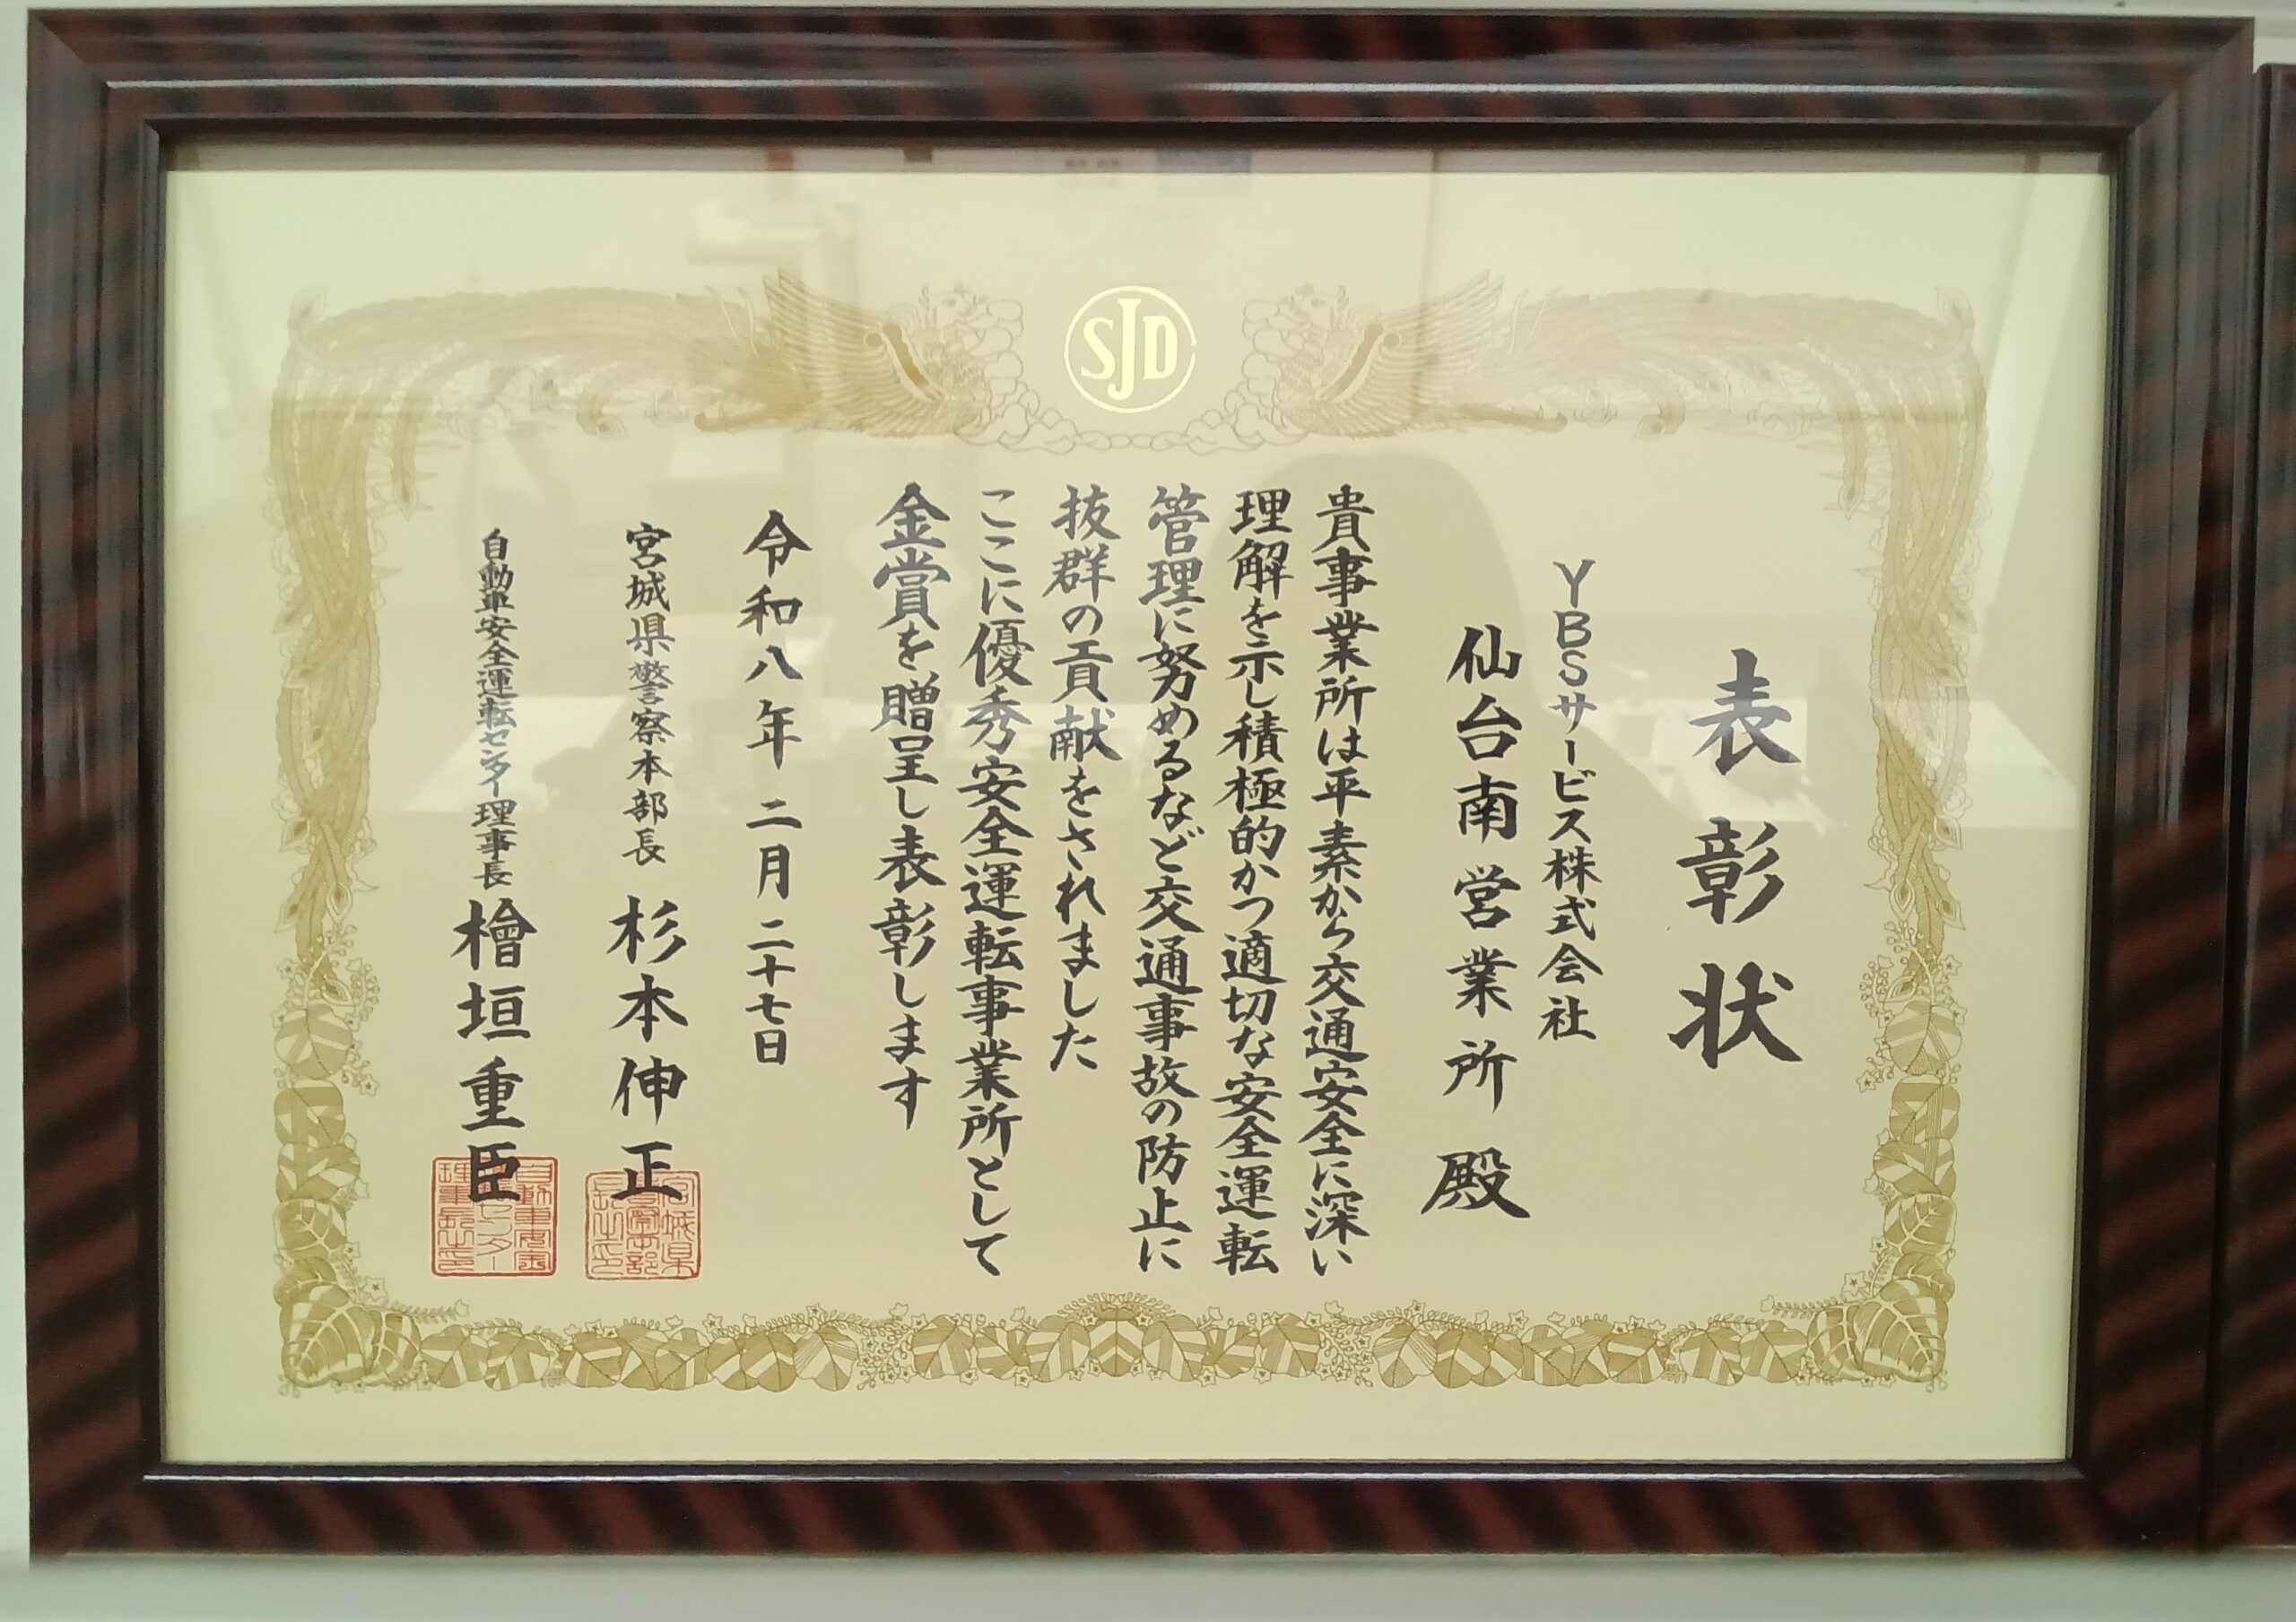 SJD
表彰状
YBSサービス株式会社
仙台南営業所殿
貴事業所は平素から交通安全に深い
理解を示し積極的かつ適切な安全運転
管理に努めるなど交通事故の防止に
抜群の貢献をされました
ここに優秀安全運転事業所として
金賞を贈呈し表彰します
令和八年二月二十七日
宮城県警察本部長 杉本伸正
自動車安全運転センター理事長 檜垣重臣